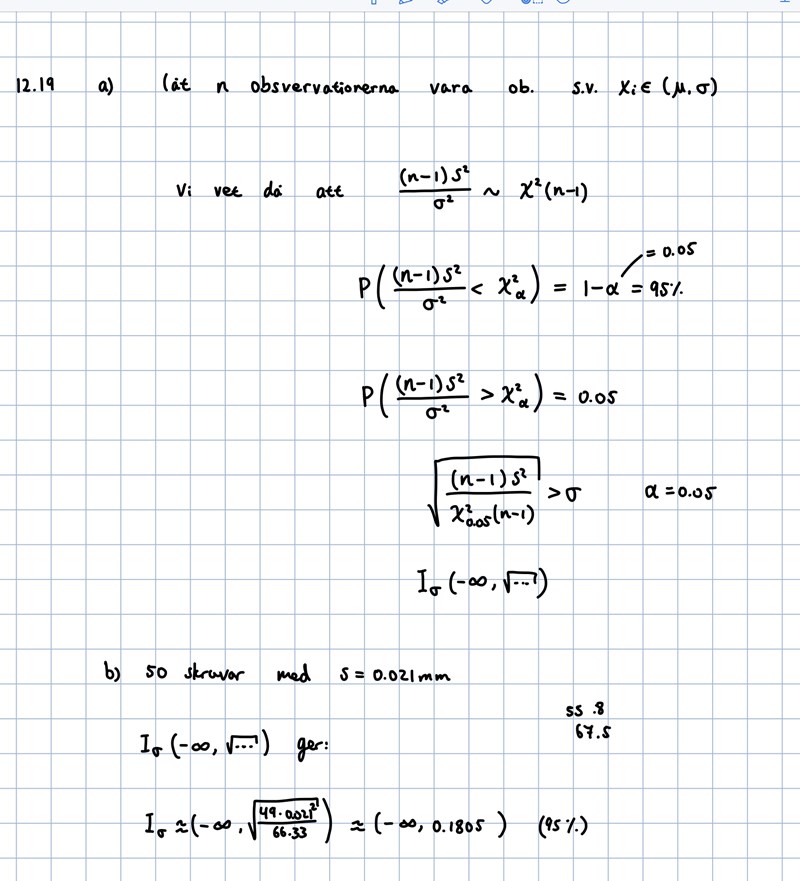 12.19 a) låt n obsvervationerna vara ob. s.v. Xi ∈ (μ, σ)
Vi vet då att (n-1)S²/σ² ~ χ²(n-1)
= 0.05
P((n-1)S²/σ² < χ²α) = 1-α = 95%
P((n-1)S²/σ² > χ²α) = 0.05
√((n-1)S²/χ²0.05(n-1)) > σ α = 0.05
Iσ (-∞, √...)
b) 50 skruvar med s = 0.021 mm
55.8
67.5
Iσ (-∞, √...) ger:
Iσ ≈ (-∞, √(49·0.021²/66.33)) ≈ (-∞, 0.1805) (95%)